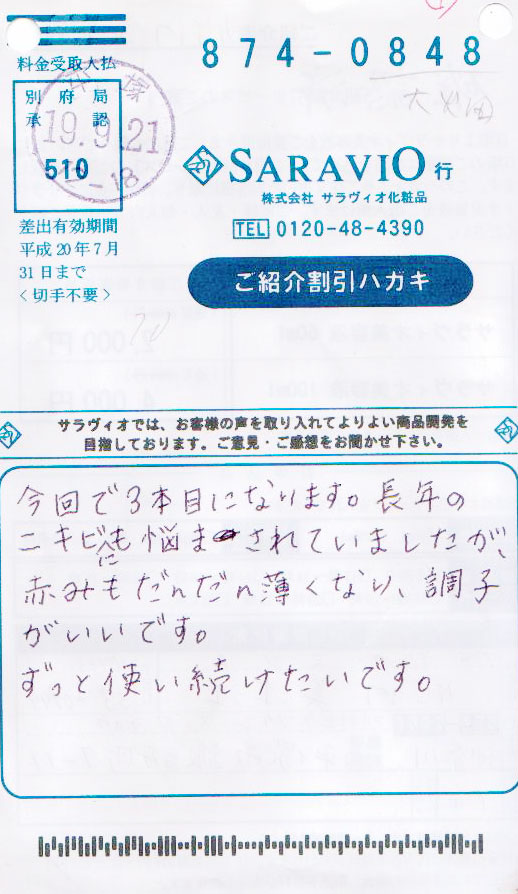 874-0848
料金受取人払
別府局
承認
510
19.9.21
SARAVIO 行
株式会社 サラヴィオ化粧品
TEL 0120-48-4390
差出有効期間
平成20年7月
31日まで
<切手不要>
ご紹介割引ハガキ
サラヴィオでは、お客様の声を取り入れてよりよい商品開発を
目指しております。ご意見・ご感想をお聞かせ下さい。
今回で3本目になります。長年の
ニキビにも悩まされていましたが、
赤みもだんだん薄くなり、調子
がいいです。
ずっと使い続けたいです。